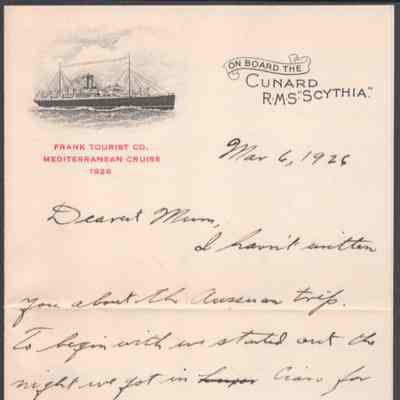 ON BOARD THE
CUNARD
R.M.S. "SCYTHIA."
FRANK TOURIST CO.
MEDITERRANEAN CRUISE
1926
Mar 6, 1926
Dearest Mum,
I havn't written
you about the Assuan trip.
To begin with we started out the
night we got in Cairo for